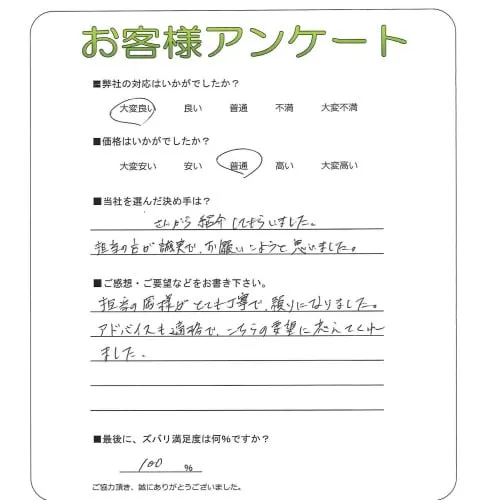 お客様アンケート
■弊社の対応はいかがでしたか？
大変良い 良い 普通 不満 大変不満
■価格はいかがでしたか？
大変安い 安い 普通 高い 大変高い
■当社を選んだ決め手は？
さんから紹介してもらいました。
担当の方が誠実で、お願いしようと思いました。
■ご感想・ご要望などをお書き下さい。
担当の 様がとても丁寧で、頼りになりました。
アドバイスも適格で、こちらの要望に応えてくれ
ました。
■最後に、ズバリ満足度は何％ですか？
100 %
ご協力頂き、誠にありがとうございました。